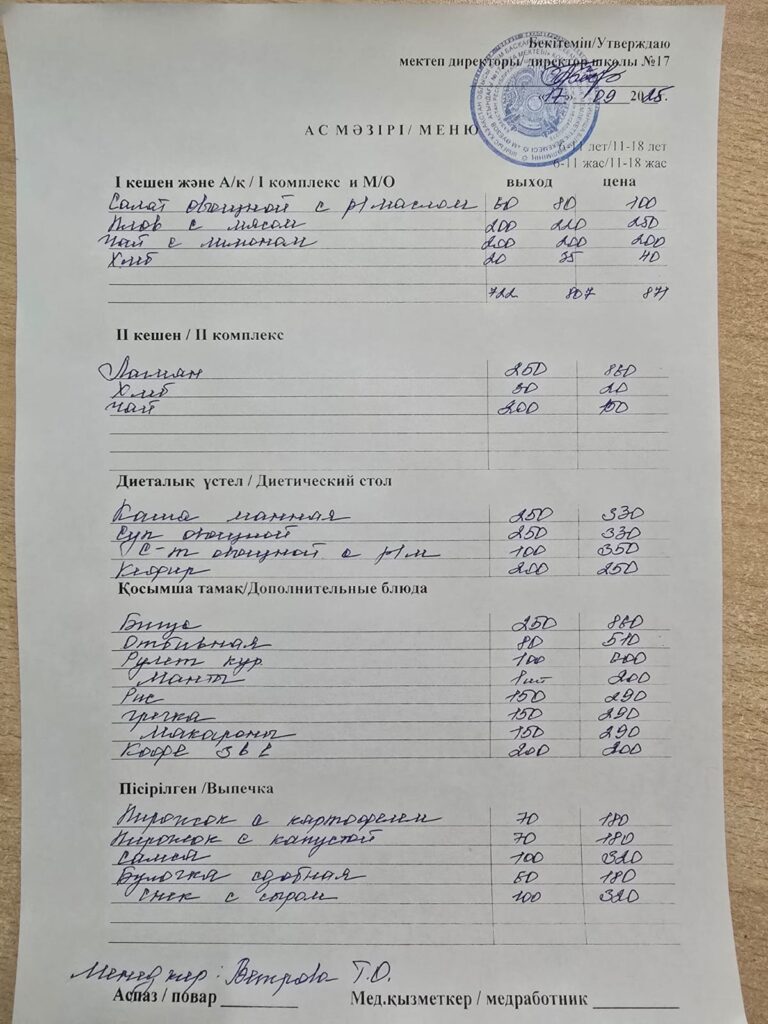 Бекітемін/Утверждаю
мектеп директоры/ директор школы №17
«17» 09 2025.
АС МӘЗІРІ/ МЕНЮ
6-11 лет/11-18 лет
6-11 жас/11-18 жас
І кешен және А/қ / І комплекс и М/О выход цена
Салат овощной с р/маслом 60 80 100
Плов с мясом 200 220 250
Чай с лимоном 200 200 200
Хлеб 20 35 40
722 807 877
ІІ кешен / ІІ комплекс
Лагман 250 860
Хлеб 30 20
Чай 200 150
Диеталық үстел / Диетический стол
Каша манная 250 330
Суп овощной 250 330
С-т овощной с р/м 100 350
Кефир 200 250
Қосымша тамақ/Дополнительные блюда
250 860
Отбивная 80 510
Рулет кур 100
Манты 1 шт 200
Рис 150 290
Гречка 150 290
Макароны 150 290
Кофе 3 в 1 200 200
Пісірілген /Выпечка
Пирожок с картофелем 70 180
Пирожок с капустой 70 180
Самса 100 320
Булочка сдобная 60 180
с сыром 100 320
Менеджер: Ветрова Т.О.
Аспаз / повар
Мед.қызметкер / медработник